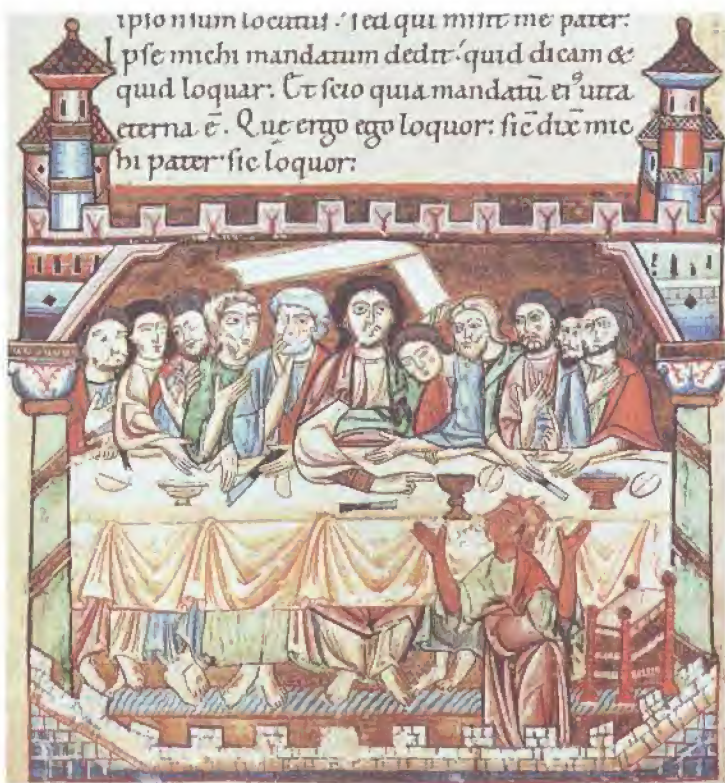 ipso non sum locutus. sed qui misit me pater:
Ipse michi mandatum dedit. quid dicam &
quid loquar. Et scio quia mandatū eiꝰ uita
eterna ē. Que ergo ego loquor: sic dix̄ mic
hi pater. sic loquor: